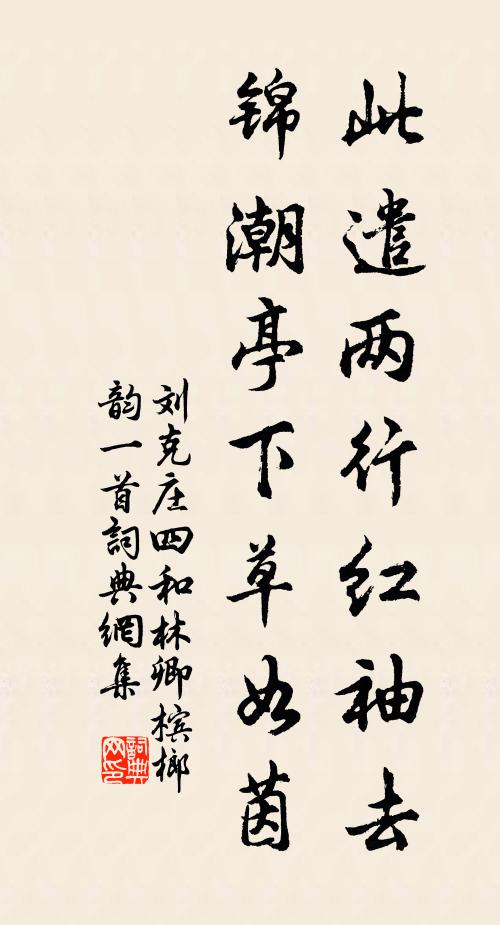 此遣两行红袖去
锦潮亭下草如茵
刘克庄四和林卿槟榔
韵一首詞典網集
詞典
网印